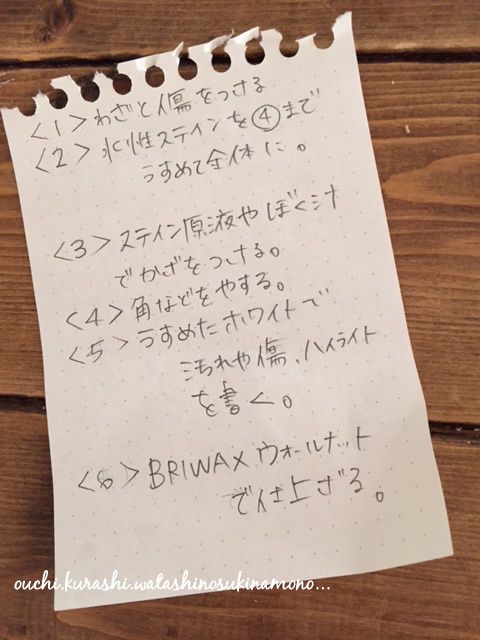 <1> わざと傷をつける
<2> 水性ステインを④まで
うすめて全体に。
<3> ステイン原液やぼく汁
でかざをつける。
<4> 角などをやする。
<5> うすめたホワイトで
汚れや傷、ハイライト
を書く。
<6> BRIWAX ウォールナット
で仕上げる。
ouchi.kurashi.watashinosukinamono...